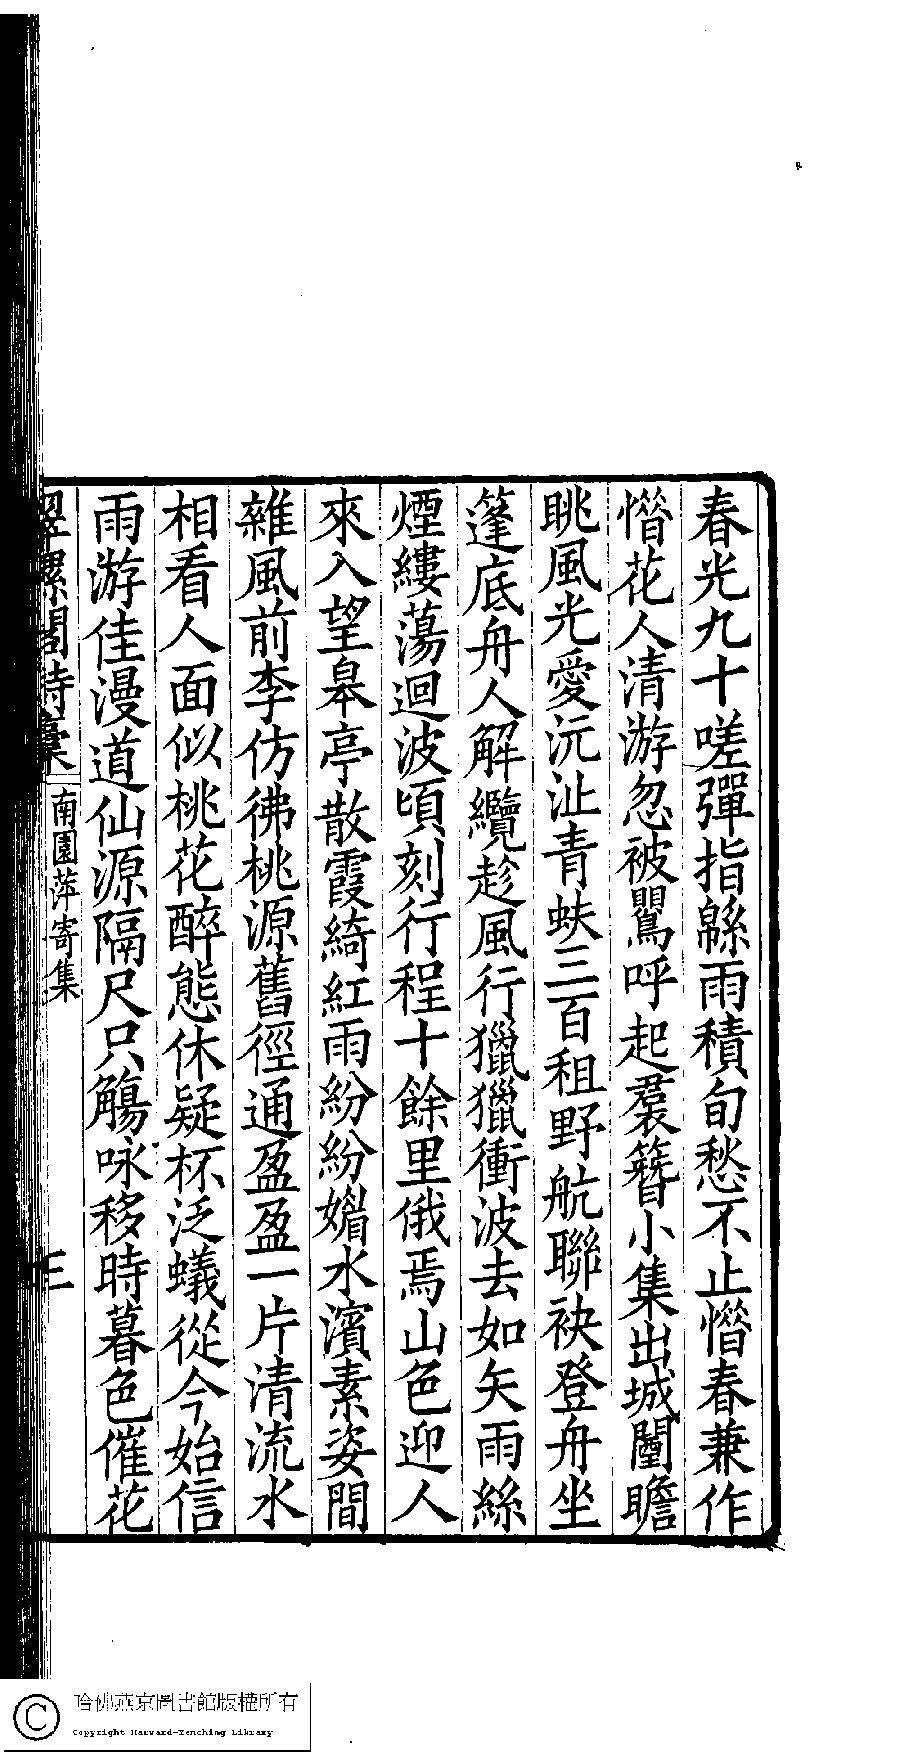 春光九十嗟彈指緜雨積旬愁不止憯春兼作
憯花人清游忽被鸎呼起羣簪小集出城闉瞻
眺風光愛沅沚青蚨三百租野航聯袂登舟坐
篷底舟人解纜趁風行獵獵衝波去如矢雨絲
煙縷蕩迴波頃刻行程十餘里俄焉山色迎人
來入望皋亭散霞綺紅雨紛紛媚水濱素姿間
雜風前李仿彿桃源舊徑通盈盈一片清流水
相看人面似桃花醉態休疑杯泛蟻從今始信
雨游佳漫道仙源隔尺只觴咏移時暮色催花
翠螺閣詩稾 南園萍寄集 三
哈佛燕京圖書館版權所有
Copyright Harvard-Yenching Library